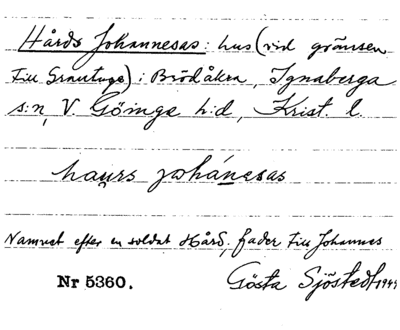 Hårds Johannesas: hus (vid gränsen
till Grautuge) i Brödåkra, Ignaberga
s:n, V. Göinge h:d, Krist. l.
haurs johánesas
Namnet efter en soldat Hård, fader till Johannes
Nr 5360. Gösta Sjöstedt 1944